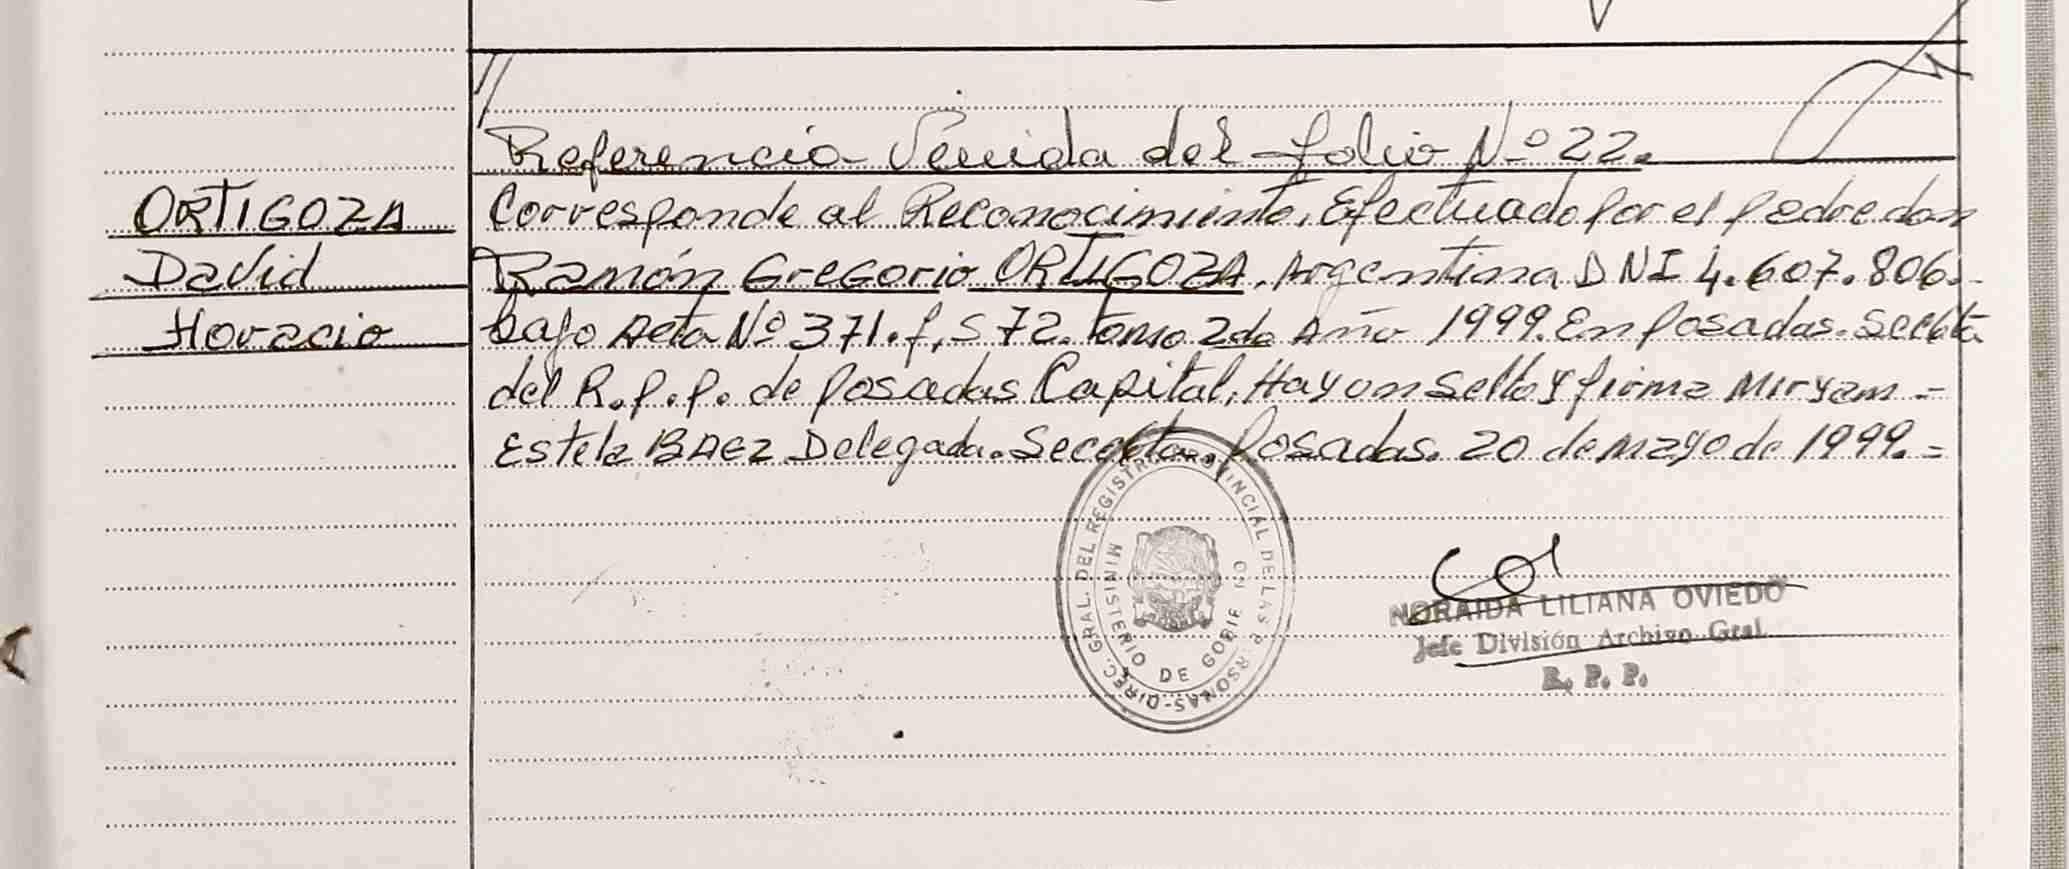 //
Referencia Venida del folio Nº 22.
ORTIGOZA
David
Horacio
Corresponde al Reconocimiento, Efectuado por el padre don
Ramón Gregorio ORTIGOZA. Argentina DNI 4.607.806.-
bajo Acta Nº 371. f, S 72. tomo 2do Año 1999. En posadas.
del R.p.p. de posadas Capital, Hay un sello y firma Miryam -
Estela BAEZ Delegada. posadas. 20 de mayo de 1999. =
DIREC. GRAL. DEL REGISTRO PROVINCIAL DE LAS PERSONAS-
MINISTERIO DE GOBIERNO
NORAIDA LILIANA OVIEDO
Jefe División Archivo Gral.
R. P. P.